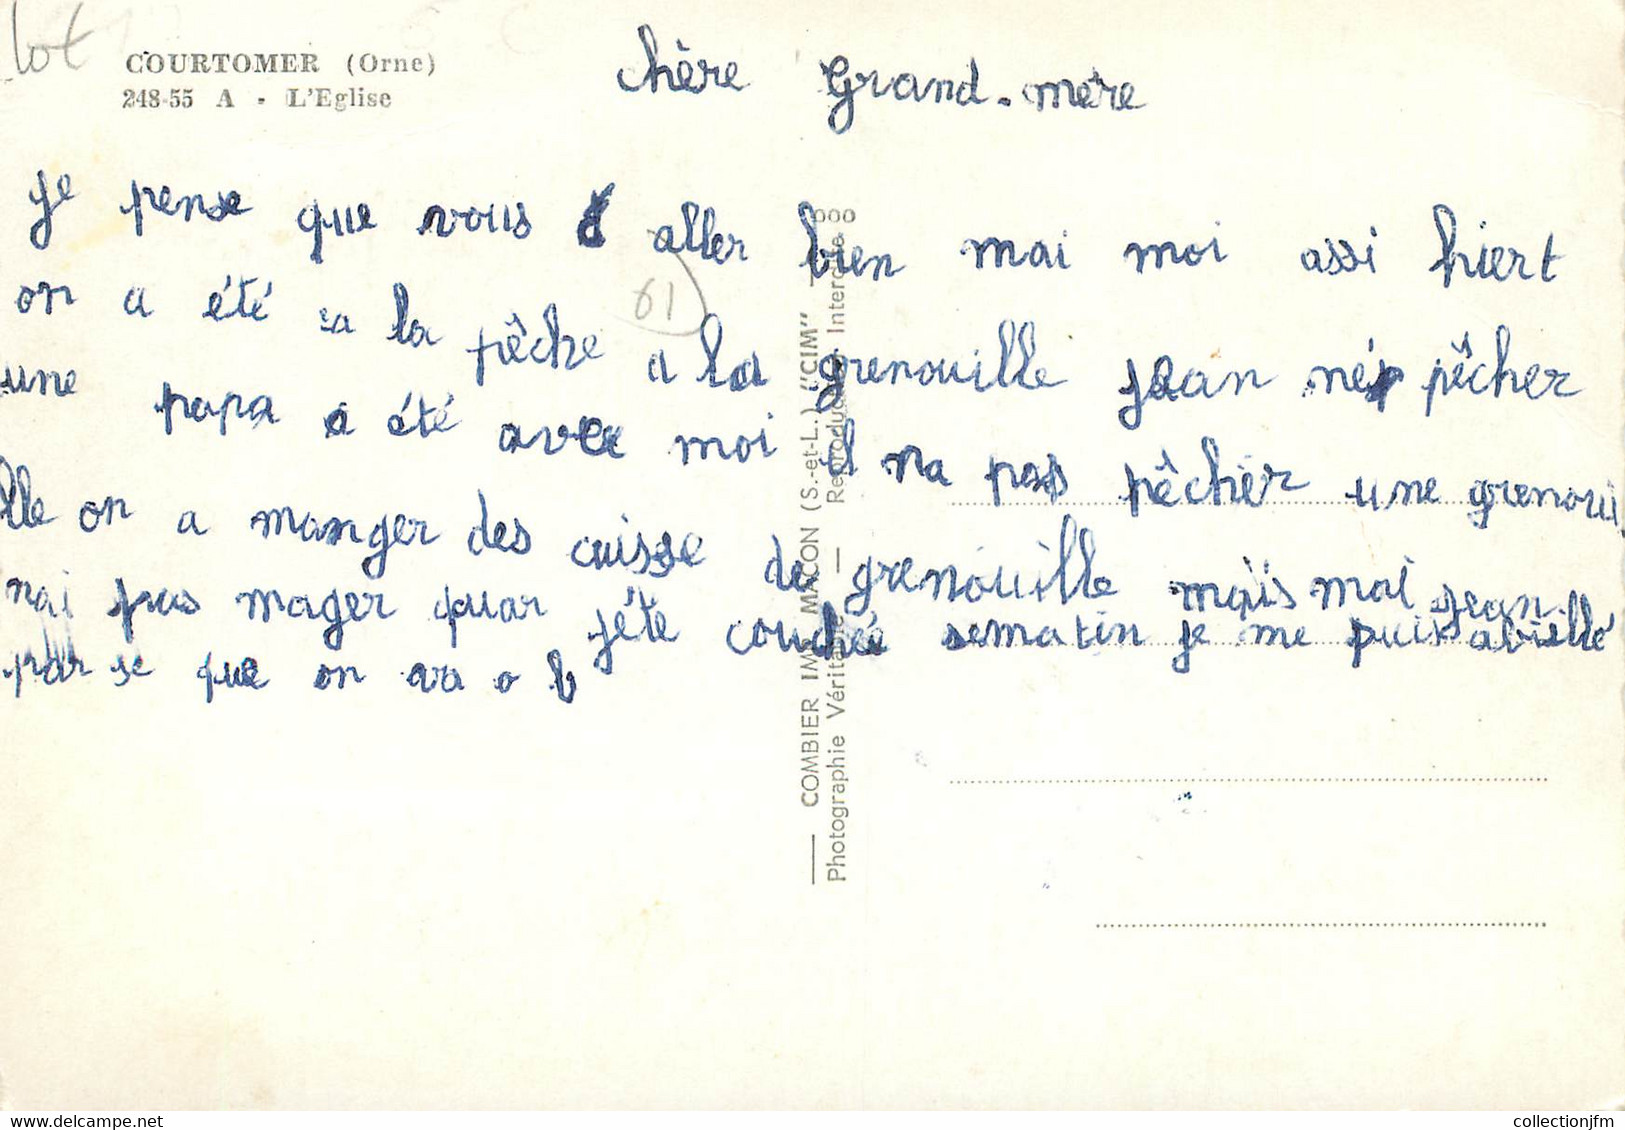 lot
COURTOMER (Orne)
248-55 A - L'Eglise
chère Grand-mère
je pense que vous aller bien mai moi assi hiert
on a été a la pêche a la grenouille jean né pêcher
une papa a été avec moi il na pas pêcher une grenoui
lle on a manger des cuisse de grenouille maïs moi jean
nai pas mager quar jéte couchée sematin je me puis
par se que on va a
61
COMBIER IMP. MACON (S.-et-L.) "CIM"
Photographie Véritable — Reproduction Interdite
collectionjfm